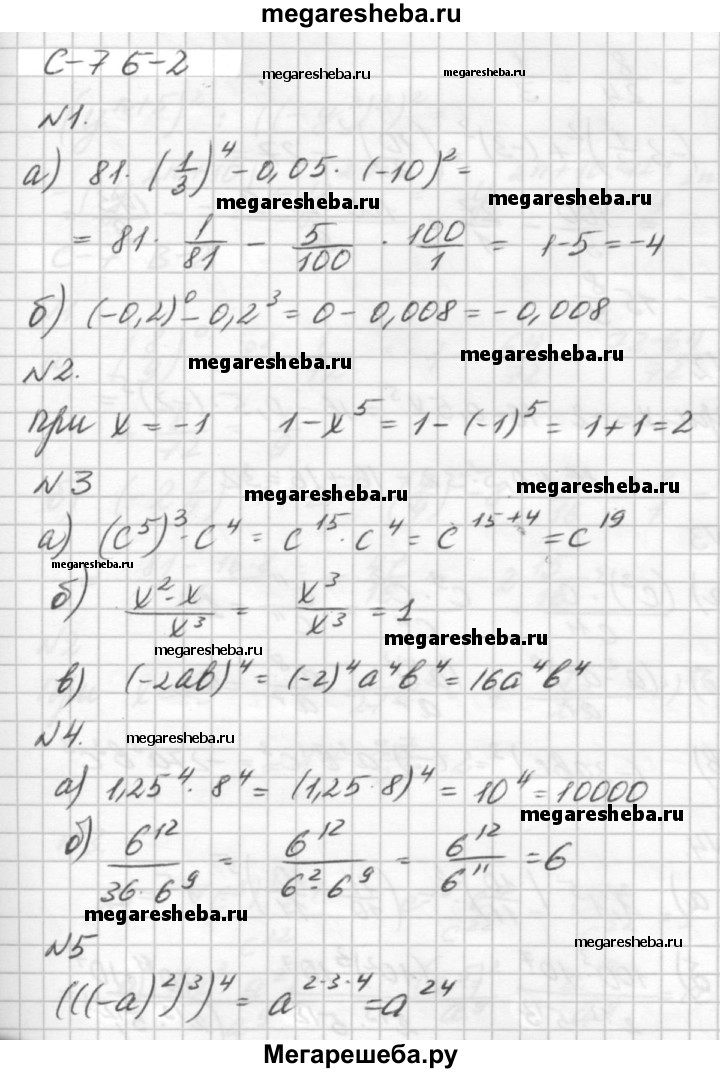 megaresheba.ru
С-7 Б-2
megaresheba.ru megaresheba.ru
№1.
а) 81·(1/3)⁴ - 0,05·(-10)² =
megaresheba.ru megaresheba.ru
= 81· 1/81 - 5/100 · 100/1 = 1-5 = -4
б) (-0,2)⁰ - 0,2³ = 0 - 0,008 = -0,008
megaresheba.ru megaresheba.ru
№2.
при x = -1 1-x⁵ = 1-(-1)⁵ = 1+1=2
№3
megaresheba.ru megaresheba.ru
а) (c⁵)³·c⁴ = c¹⁵·c⁴ = c¹⁵⁺⁴ = c¹⁹
megaresheba.ru
б) x²·x/x³ = x³/x³ = 1
megaresheba.ru
megaresheba.ru
в) (-2ab)⁴ = (-2)⁴a⁴b⁴ = 16a⁴b⁴
№4.
megaresheba.ru
а) 1,25⁴·8⁴ = (1,25·8)⁴ = 10⁴ = 10000
megaresheba.ru
б) 6¹²/36·6⁹ = 6¹²/6²·6⁹ = 6¹²/6¹¹ = 6
megaresheba.ru
№5
megaresheba.ru
(((-a)²)³)⁴ = a²·³·⁴ = a²⁴
Мегарешеба.ру